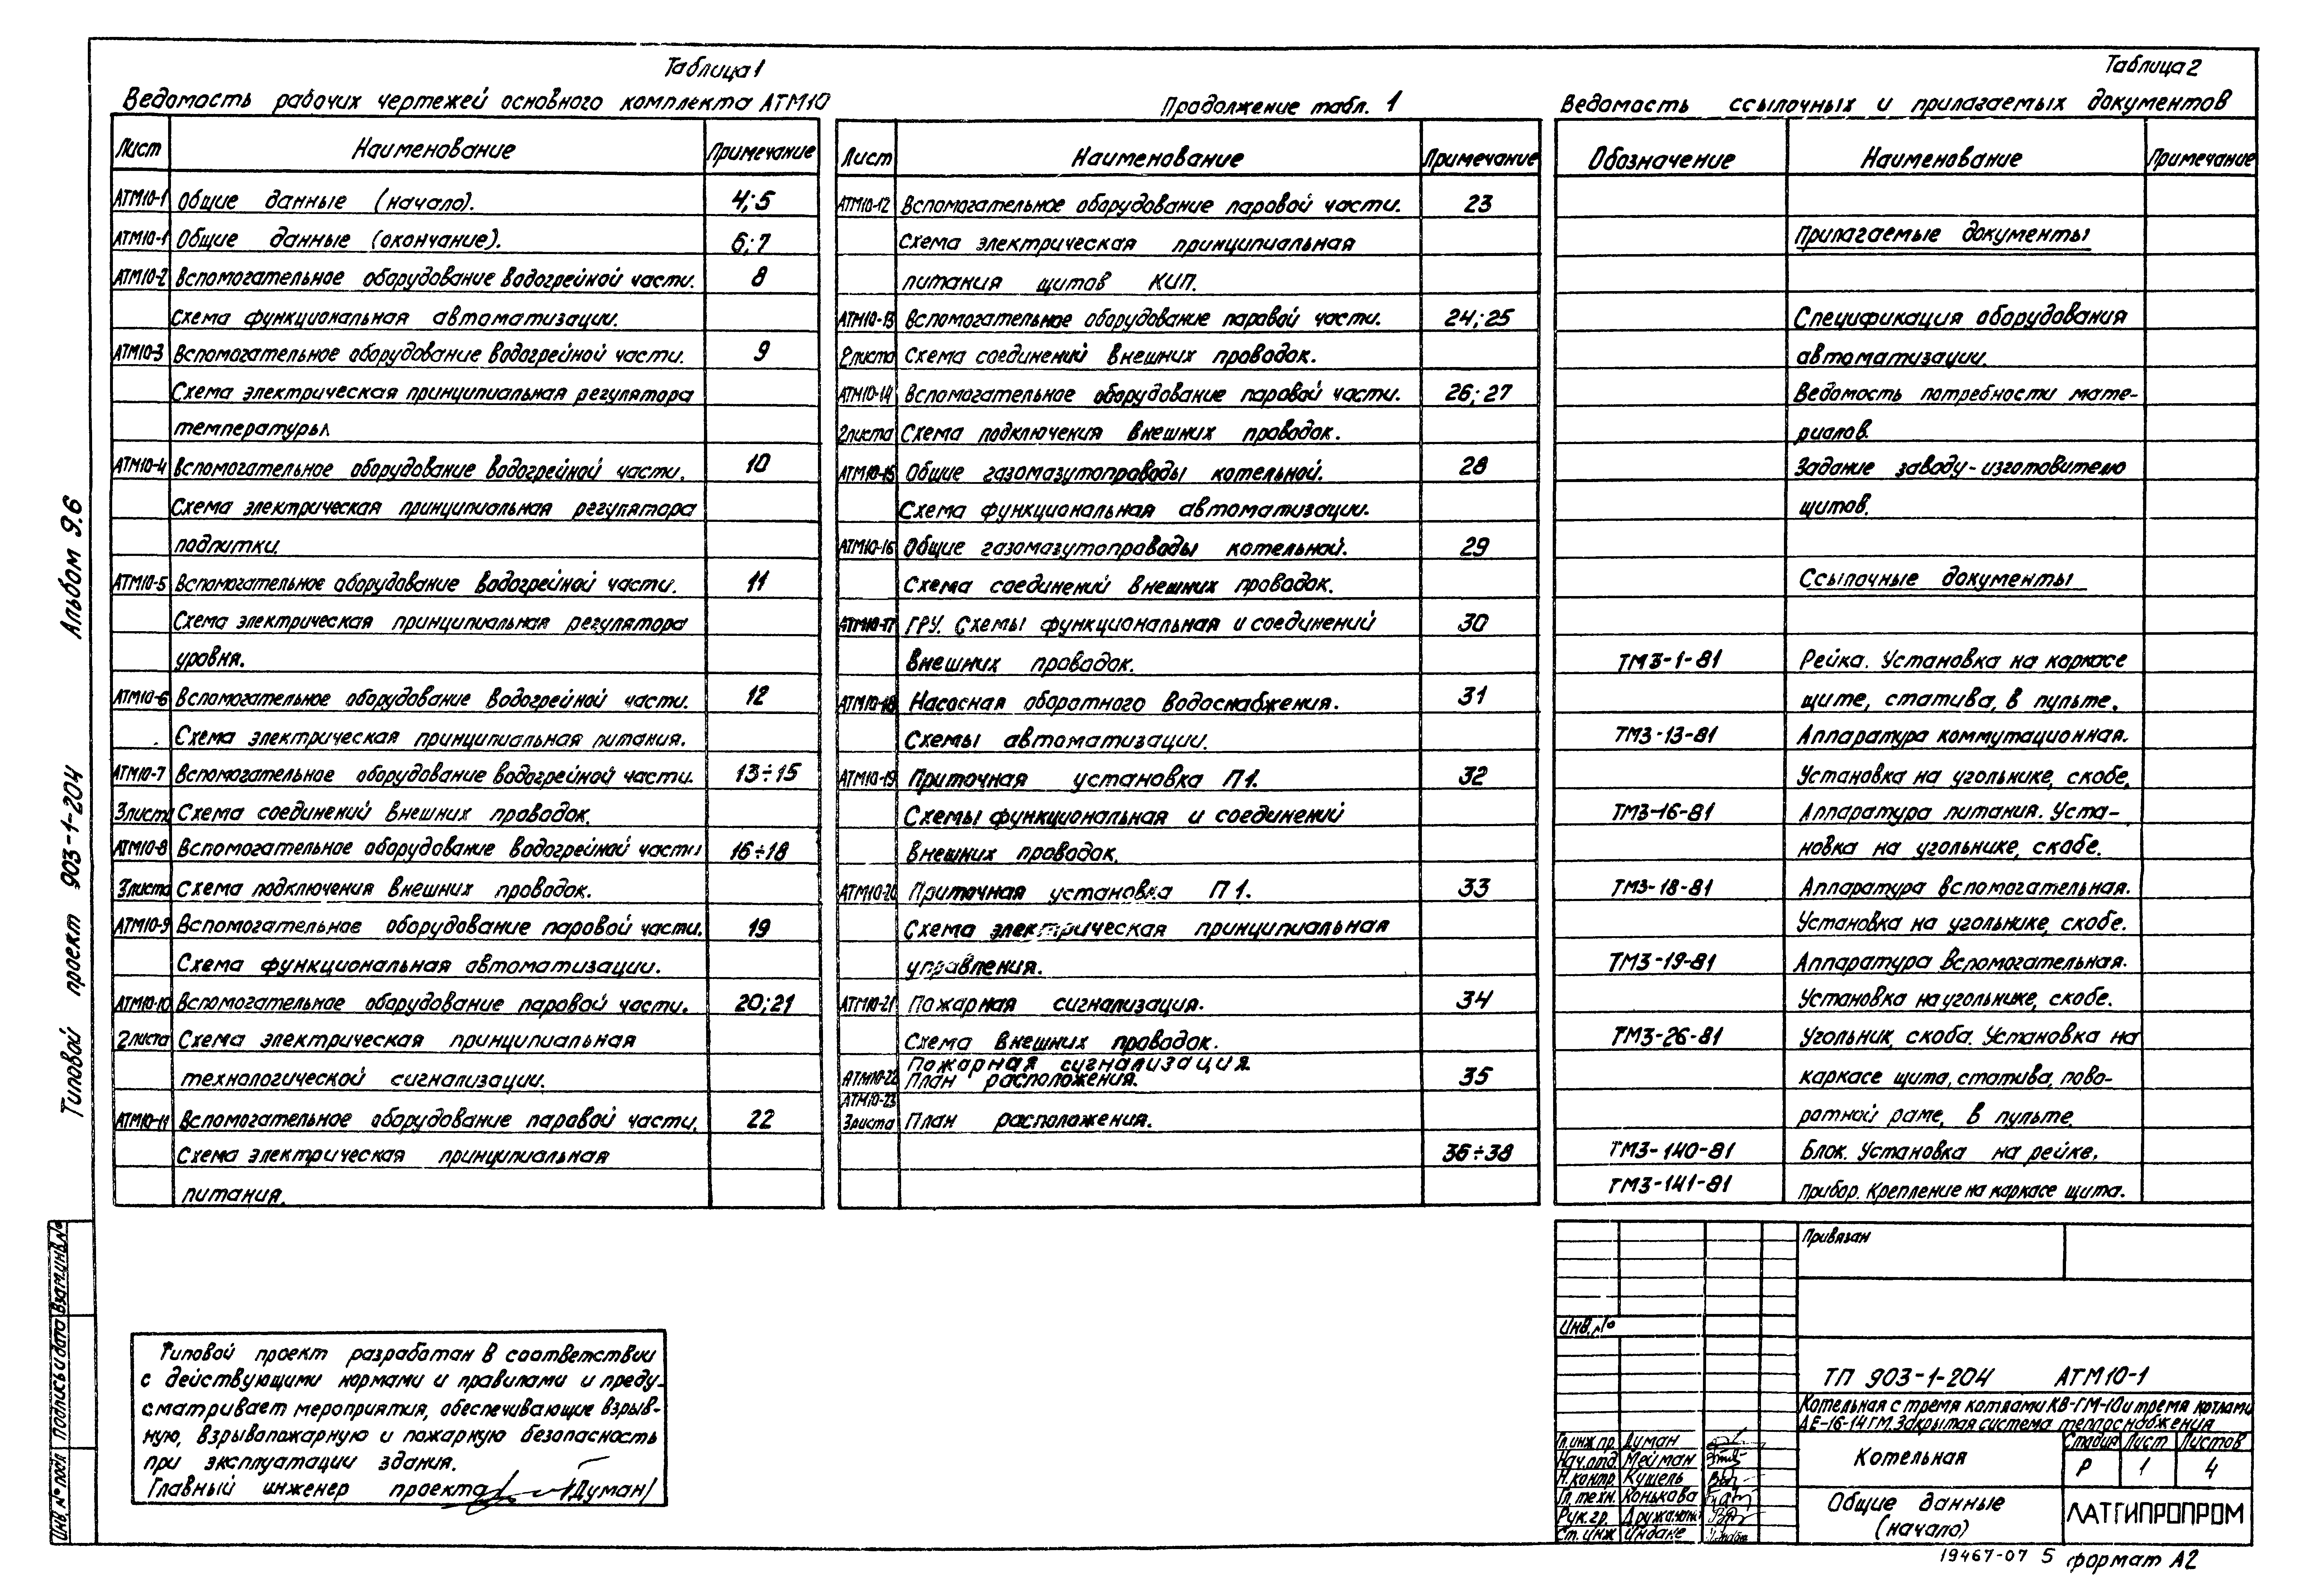 Таблица 1
Ведомость рабочих чертежей основного комплекта АТМ10
Лист Наименование Примечание
АТМ10-1 Общие данные (начало). 4; 5
АТМ10-1 Общие данные (окончание). 6; 7
АТМ10-2 Вспомогательное оборудование водогрейной части. 8
Схема функциональная автоматизации.
АТМ10-3 Вспомогательное оборудование водогрейной части. 9
Схема электрическая принципиальная регулятора
температуры
АТМ10-4 Вспомогательное оборудование водогрейной части. 10
Схема электрическая принципиальная регулятора
подпитки.
АТМ10-5 Вспомогательное оборудование водогрейной части. 11
Схема электрическая принципиальная регулятора
уровня.
АТМ10-6 Вспомогательное оборудование водогрейной части. 12
Схема электрическая принципиальная питания.
АТМ10-7 Вспомогательное оборудование водогрейной части. 13÷15
3листа Схема соединений внешних проводок.
АТМ10-8 Вспомогательное оборудование водогрейной части 16÷18
3листа Схема подключения внешних проводок.
АТМ10-9 Вспомогательное оборудование паровой части. 19
Схема функциональная автоматизации.
АТМ10-10 Вспомогательное оборудование паровой части. 20; 21
2листа Схема электрическая принципиальная
технологической сигнализации.
АТМ10-11 Вспомогательное оборудование паровой части. 22
Схема электрическая принципиальная
питания.
Продолжение табл. 1
Лист Наименование Примечание
АТМ10-12 Вспомогательное оборудование паровой части. 23
Схема электрическая принципиальная
питания щитов КИП.
АТМ10-13 Вспомогательное оборудование паровой части. 24; 25
2листа Схема соединений внешних проводок.
АТМ10-14 Вспомогательное оборудование паровой части. 26; 27
2листа Схема подключения внешних проводок.
АТМ10-15 Общие газомазутопроводы котельной. 28
Схема функциональная автоматизации.
АТМ10-16 Общие газомазутопроводы котельной. 29
Схема соединений внешних проводок.
АТМ10-17 ГРУ. Схемы функциональная и соединений 30
внешних проводок.
АТМ10-18 Насосная оборотного водоснабжения. 31
Схемы автоматизации.
АТМ10-19 Приточная установка П1. 32
Схемы функциональная и соединений
внешних проводок.
АТМ10-20 Приточная установка П1. 33
Схема электрическая принципиальная
управления.
АТМ10-21 Пожарная сигнализация. 34
Схема внешних проводок.
Пожарная сигнализация.
АТМ10-22 План расположения. 35
АТМ10-23
3листа План расположения.
36÷38
Таблица 2
Ведомость ссылочных и прилагаемых документов
Обозначение Наименование Примечание
Прилагаемые документы
Спецификация оборудования
автоматизации.
Ведомость потребности мате-
риалов.
Задание заводу-изготовителю
щитов.
Ссылочные документы
ТМ3-1-81 Рейка. Установка на каркасе
щите, статива, в пульте.
ТМ3-13-81 Аппаратура коммутационная.
Установка на угольнике, скобе.
ТМ3-16-81 Аппаратура питания. Уста-
новка на угольнике, скобе.
ТМ3-18-81 Аппаратура вспомогательная.
Установка на угольнике, скобе.
ТМ3-19-81 Аппаратура вспомогательная.
Установка на угольнике, скобе.
ТМ3-26-81 Угольник, скоба. Установка на
каркасе щита, статива, пово-
ротной раме, в пульте.
ТМ3-140-81 Блок. Установка на рейке.
ТМ3-141-81 Прибор. Крепление на каркасе щита.
Альбом 9.6
Типовой проект 903-1-204
Взам.инв.№
Подпись и дата
Инв.№ подл
Типовой проект разработан в соответствии
с действующими нормами и правилами и преду-
сматривает мероприятия, обеспечивающие взрыв-
ную, взрывопожарную и пожарную безопасность
при эксплуатации здания.
Главный инженер проекта /Думан/
Привязан
Инв.№
ТП 903-1-204 АТМ10-1
Котельная с тремя котлами КВ-ГМ-10 и тремя котлами
ДЕ-16-14ГМ. Закрытая система теплоснабжения
Гл.инж.пр. Думан
Нач.отд Мейман
Н.контр. Кушель
Гл.техн. Конькова
Рук.гр.
Ст.инж Индане
Котельная
Стадия Лист Листов
Р 1 4
Общие данные
(начало)
ЛАТГИПРОПРОМ
19467-07 5 формат А2